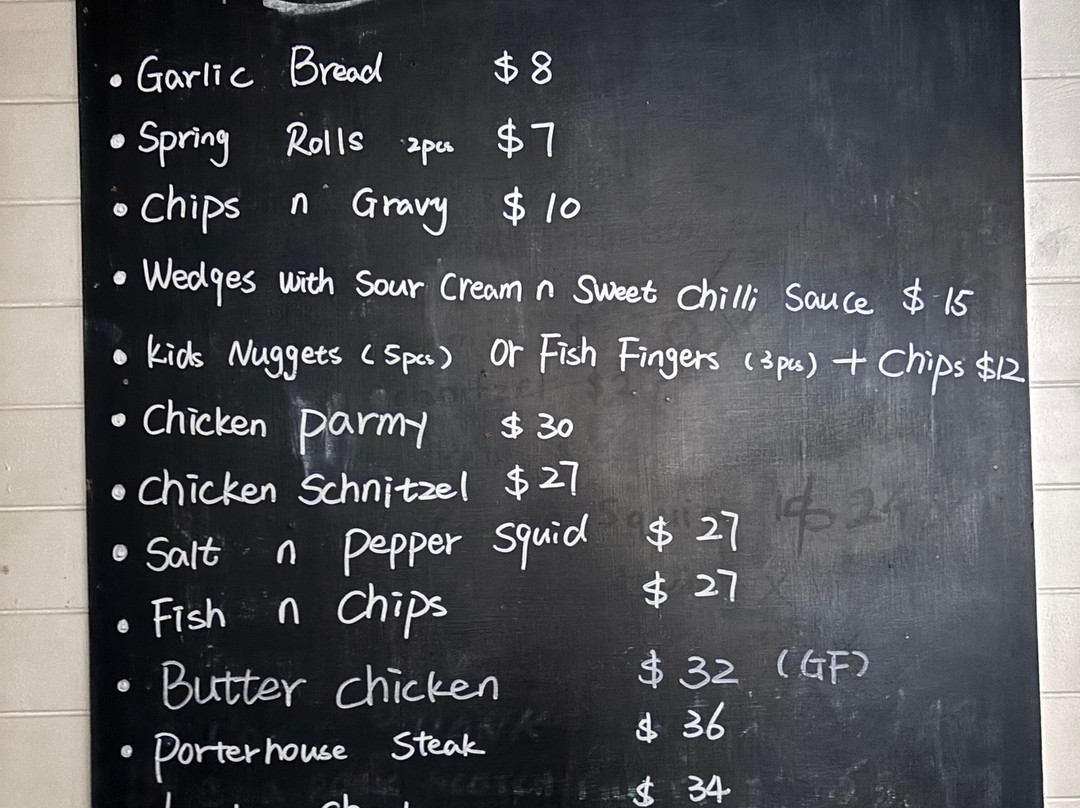 • Garlic Bread $8
• Spring Rolls 2pcs $7
• Chips n Gravy $10
• Wedges with Sour Cream n Sweet Chilli Sauce $15
• Kids Nuggets (5pcs) Or Fish Fingers (3pcs) + Chips $12
• Chicken parmy $30
• Chicken Schnitzel $27
• Salt n pepper squid $27
• Fish n Chips $27
• Butter chicken $32 (GF)
• Porterhouse Steak $36
$34